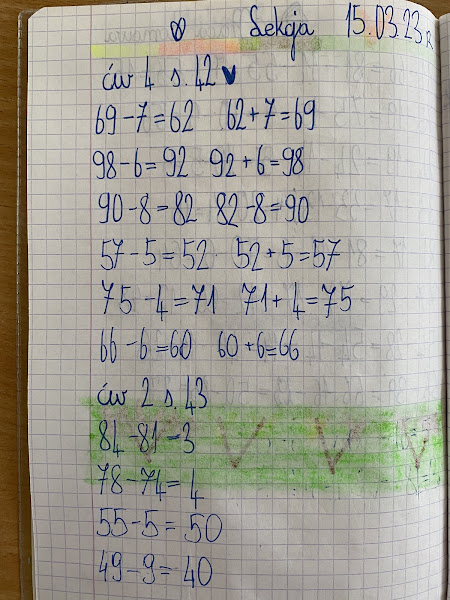 Lekcja 15.03.23 R
ćw 4 s. 42
69 - 7 = 62 62 + 7 = 69
98 - 6 = 92 92 + 6 = 98
90 - 8 = 82 82 - 8 = 90
57 - 5 = 52 52 + 5 = 57
75 - 4 = 71 71 + 4 = 75
66 - 6 = 60 60 + 6 = 66
ćw 2 s. 43
84 - 81 = 3
78 - 74 = 4
55 - 5 = 50
49 - 9 = 40